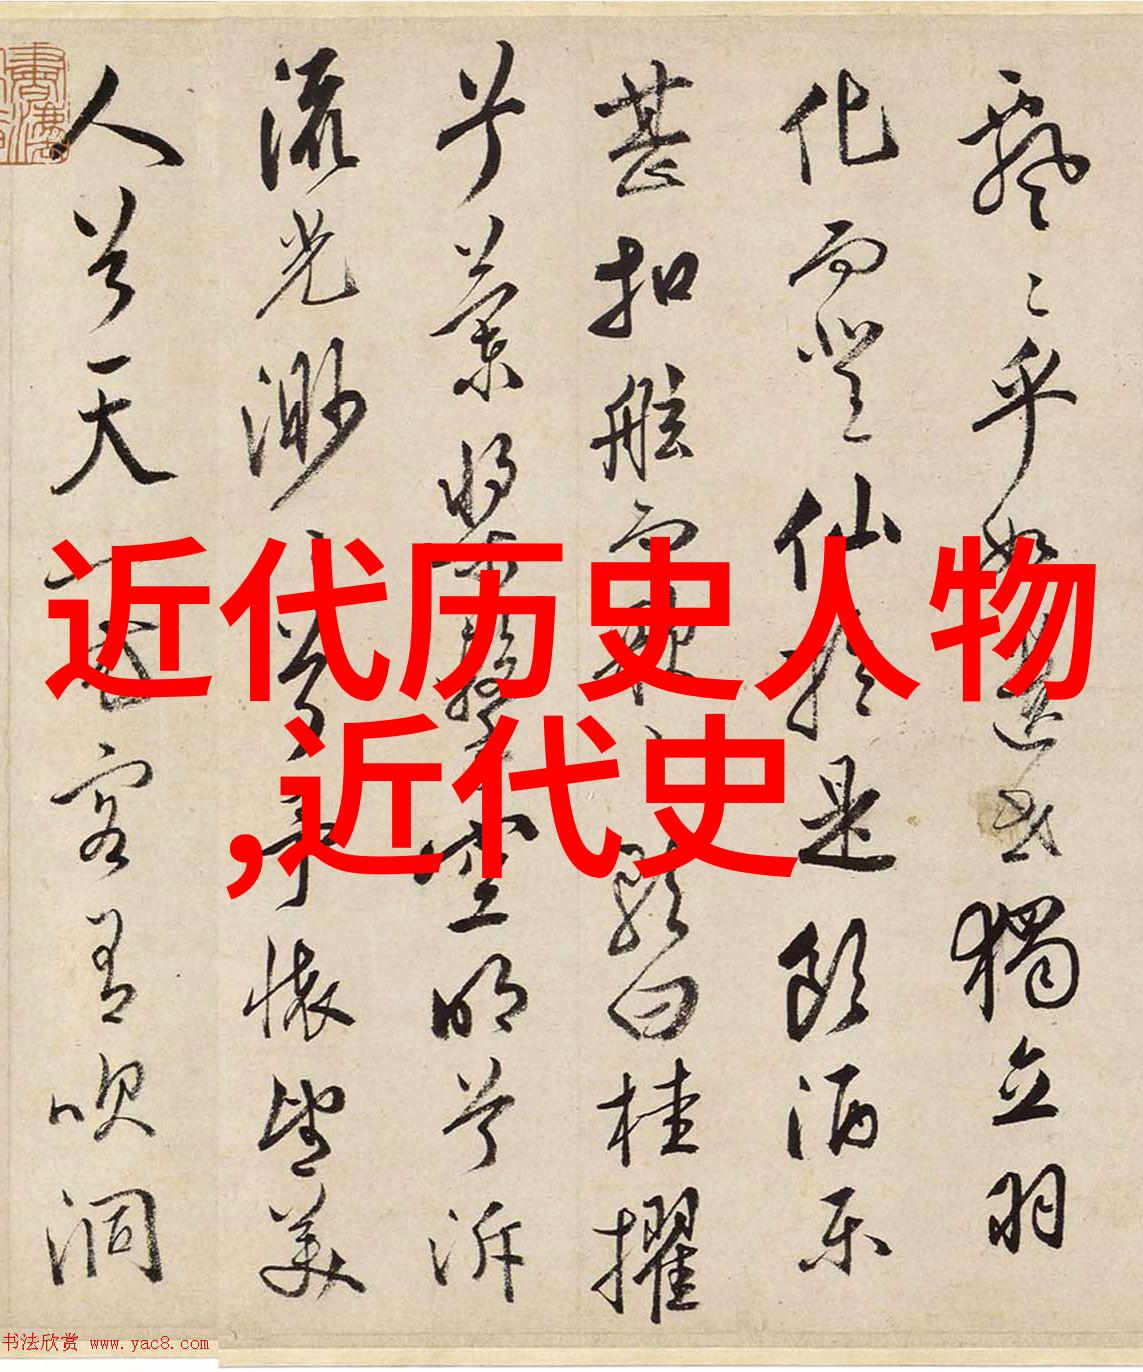 飄〻乎如遺世獨立羽
化而登仙於是飲酒樂
甚扣舷而歌之歌曰桂擢
兮蘭槳擊空明兮泝
流光渺〻兮予懷望美
人兮天一方客有吹洞
近代历史人物
,近代史
书法欣赏 www.yac8.com